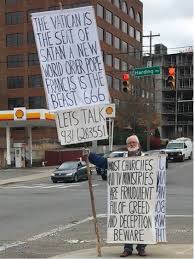 THE VATICAN IS
THE SEIT OF
SATAN A NEW
WORLD ORDER POPE
FRANCIS IS THE
BEAST 666
LETS TALK
931 6268551
Harding
MOST CHURCHES
MINISTRIES
ARE FRAUDULENT
FULL OF GREED
AND DECEPTION
BEWARE
Shell